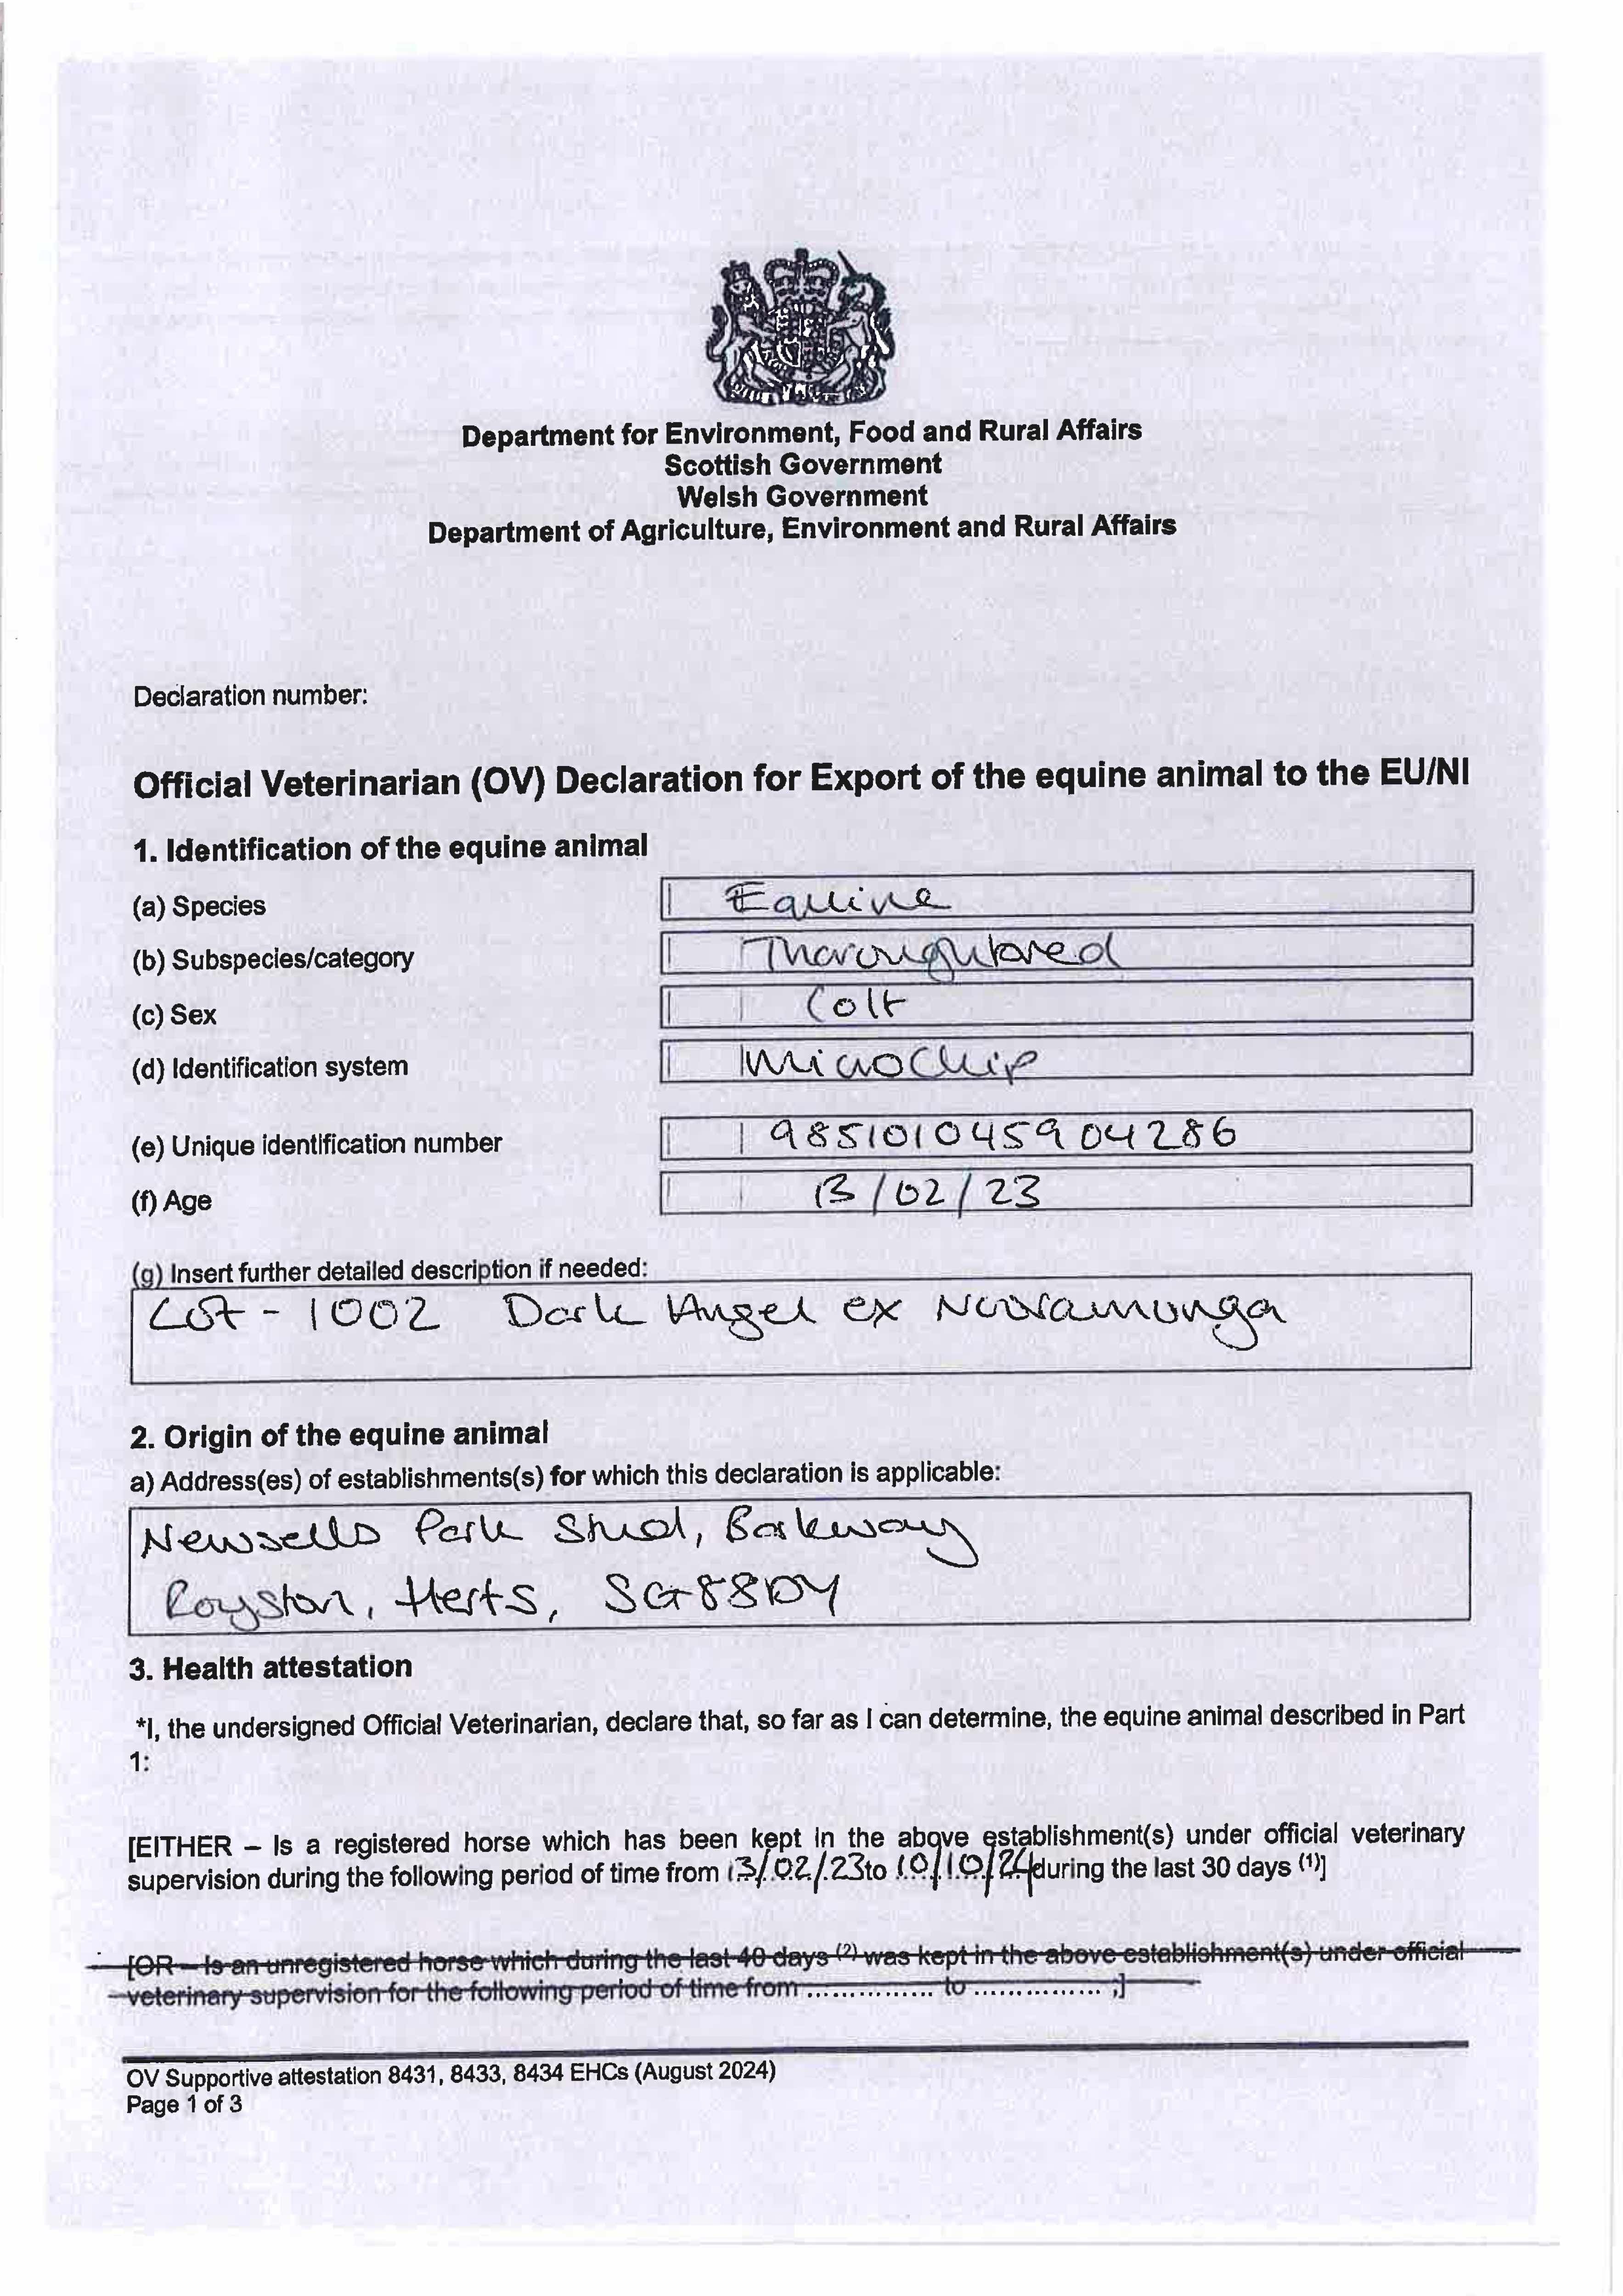 Department for Environment, Food and Rural Affairs
Scottish Government
Welsh Government
Department of Agriculture, Environment and Rural Affairs
Declaration number:
Official Veterinarian (OV) Declaration for Export of the equine animal to the EU/NI
1. Identification of the equine animal
(a) Species Equine
(b) Subspecies/category Thoroughbred
(c) Sex Colt
(d) Identification system Microchip
(e) Unique identification number 985101045904286
(f) Age 13/02/23
(g) Insert further detailed description if needed:
Lot - 1002 Dark Angel ex Nowramunga
2. Origin of the equine animal
a) Address(es) of establishments(s) for which this declaration is applicable:
Newsells Park Stud, Barkway
Royston, Herts, SG8 8DY
3. Health attestation
*I, the undersigned Official Veterinarian, declare that, so far as I can determine, the equine animal described in Part
1:
[EITHER – Is a registered horse which has been kept in the above establishment(s) under official veterinary
supervision during the following period of time from 13/02/23 to 10/10/24 during the last 30 days (1)]
[OR – Is an unregistered horse which during the last 40 days (2) was kept in the above establishment(s) under official
veterinary supervision for the following period of time from ............... to ............... ;]
OV Supportive attestation 8431, 8433, 8434 EHCs (August 2024)
Page 1 of 3